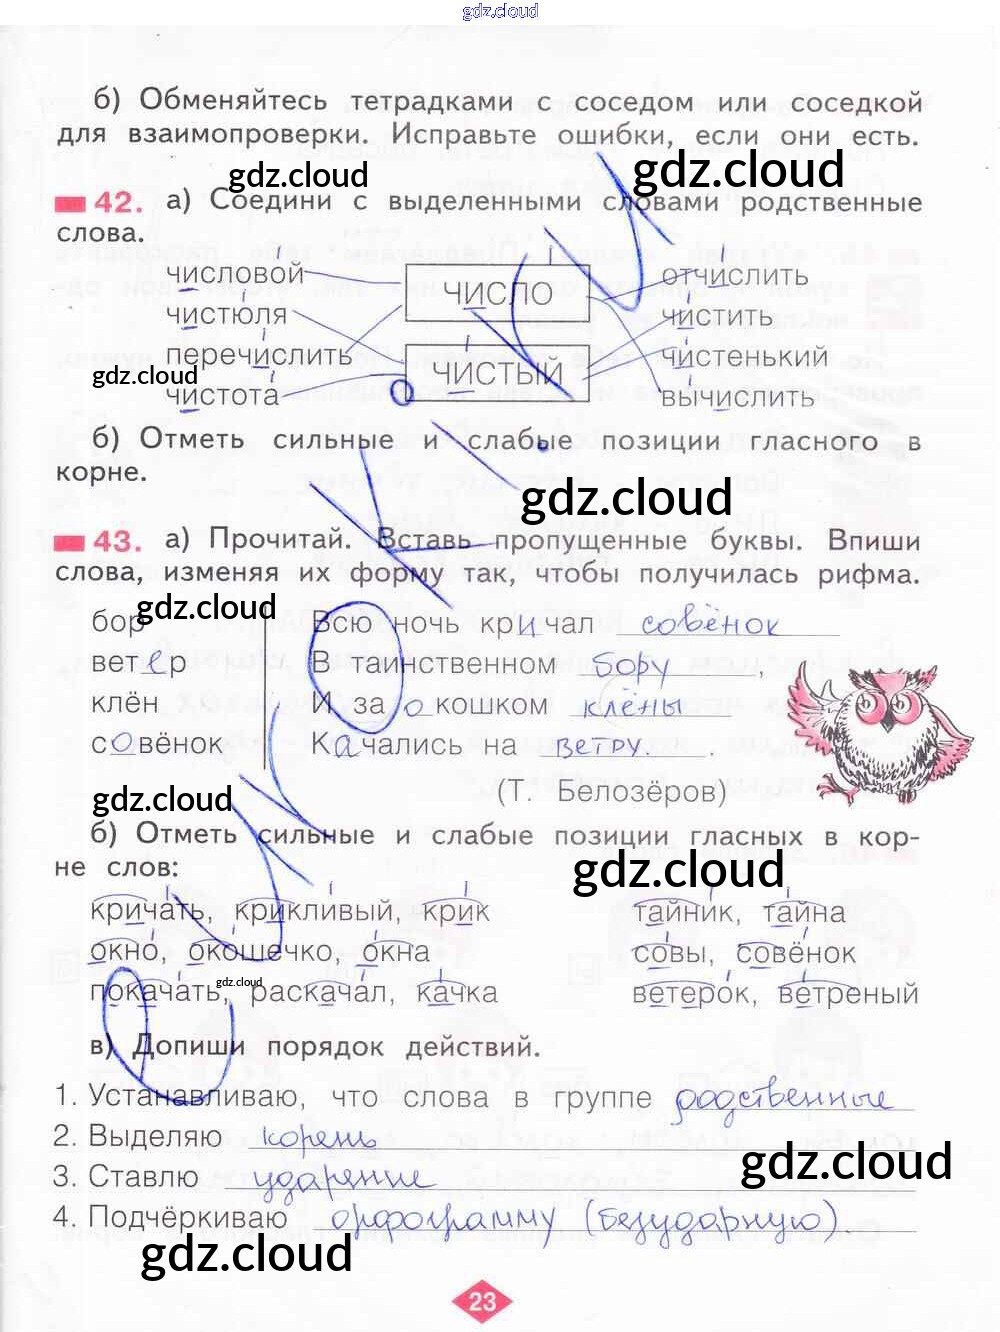 gdz.cloud
б) Обменяйтесь тетрадками с соседом или соседкой
для взаимопроверки. Исправьте ошибки, если они есть.
gdz.cloud gdz.cloud
42. а) Соедини с выделенными словами родственные
слова.
числовой ЧИСЛО отчислить
чистюля чистить
перечислить ЧИСТЫЙ чистенький
gdz.cloud
чистота вычислить
б) Отметь сильные и слабые позиции гласного в
корне.
gdz.cloud
43. а) Прочитай. Вставь пропущенные буквы. Впиши
слова, изменяя их форму так, чтобы получилась рифма.
gdz.cloud
бор Всю ночь кричал совёнок
ветер В таинственном бору,
клён И за окошком клёны
совёнок Качались на ветру.
gdz.cloud (Т. Белозёров)
б) Отметь сильные и слабые позиции гласных в кор-
не слов:
gdz.cloud
кричать, крикливый, крик тайник, тайна
окно, окошечко, окна совы, совёнок
gdz.cloud
покачать, раскачал, качка ветерок, ветреный
в) Допиши порядок действий.
1. Устанавливаю, что слова в группе родственные
2. Выделяю корень
gdz.cloud
3. Ставлю ударение
4. Подчёркиваю орфограмму (безударную)
gdz.cloud
23